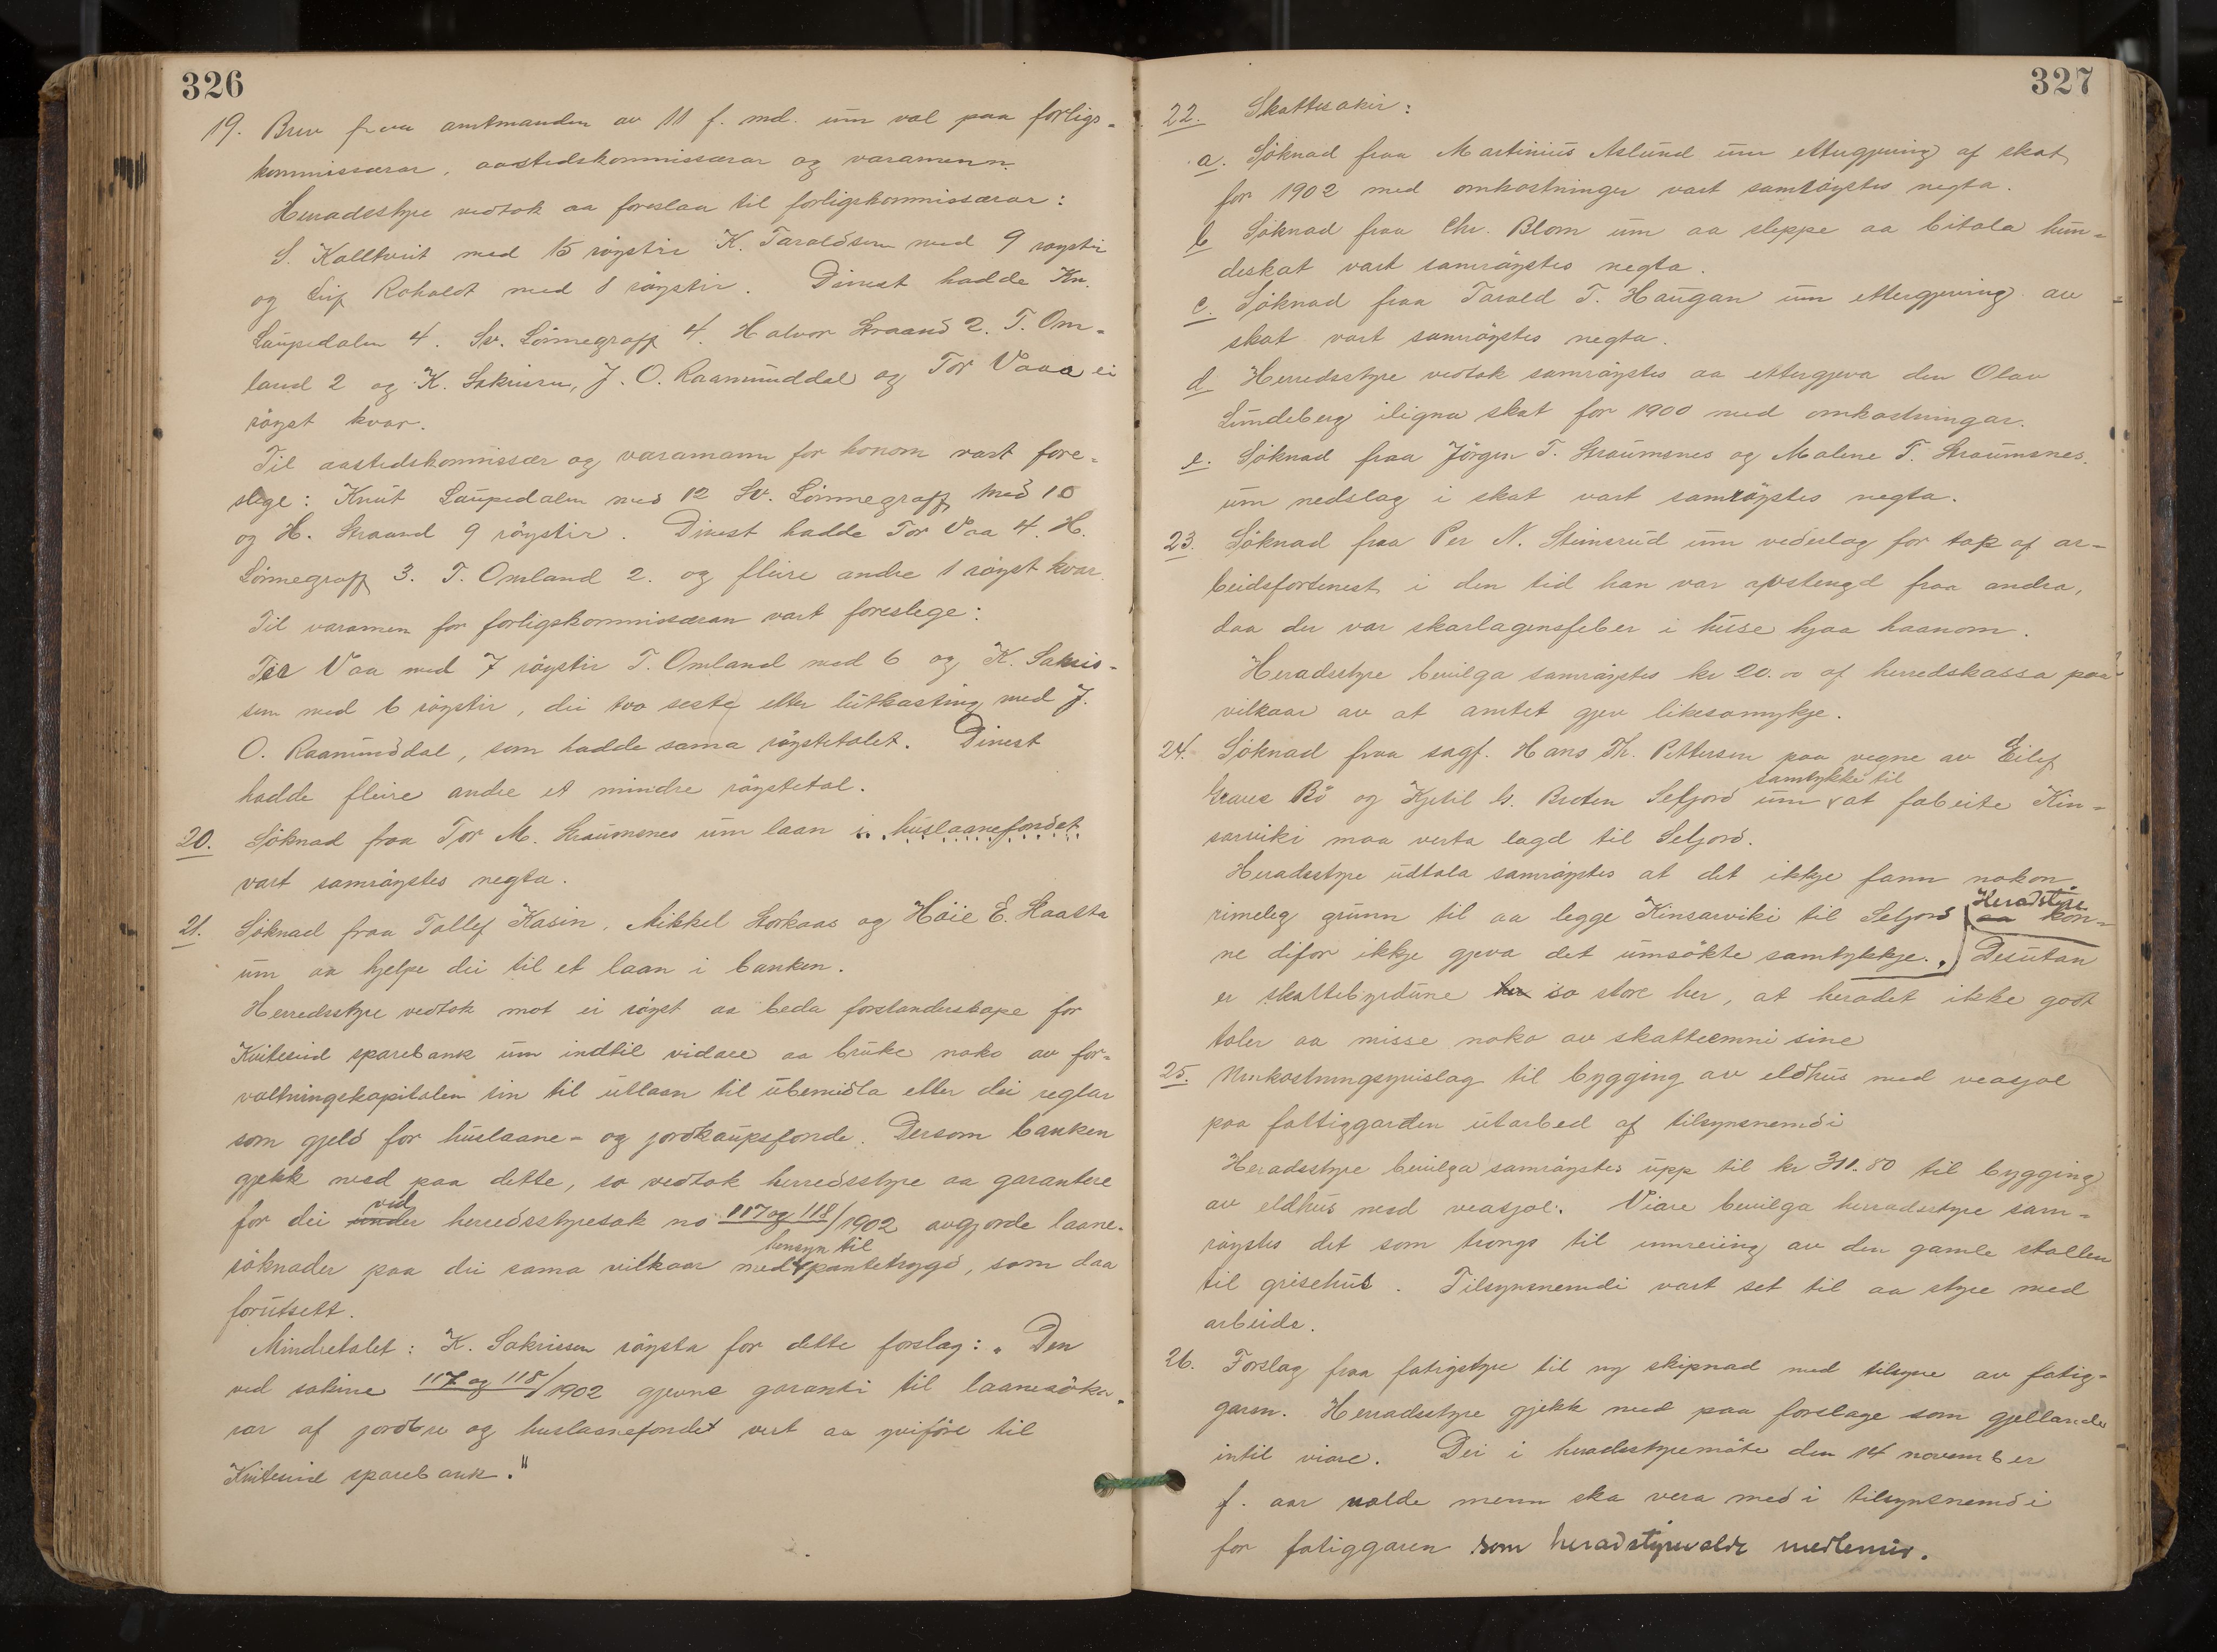 326
19. Brev fraa amtmanden av 11 f. md. um val paa forligs-
kommissærar, aastedskommissærar og varamenn.
Herradsstyre vedtok aa foreslaa til forligskommissærar:
S. Kalltveit med 15 röystir K. Taraldsen med 9 röystir
og Leif Roholdt med 8 röystir. Dinest hadde Kn.
Laupedalen 4. Sv. Lönnegraff 4. Halvor Straand 2. T. Om-
land 2 og K. Sakrisen, J. O. Raamunddal og Tor Vaaa ei
röyst kvar.
Til aastedskommissær og varamann for honom vart fore-
slege: Knut Laupedalen med 12 Sv. Lönnegraff med 10
og H. Straand 9 röystir. Dinest hadde Tor Vaa 4. H.
Lönnegraff 3. T. Omland 2. og fleire andre 1 röyst kvar.
Til varamen for forligskommissæran vart foreslege:
Tor Vaa med 7 röystir T. Omland med 6 og K. Sakris-
sen med 6 röystir, dei tvo seste etter lutkasting med J.
O. Raamunddal, som hadde sama röystetalet. Dinest
hadde fleire andre et mindre röystetal.
20. Söknad fraa Tor M. Straumsnes um laan i huslaanefondet
vart samröystes negta.
21. Söknad fraa Tollef Kasin, Mikkel Storkaas og Höie E. Haatta
um aa hjelpe dei til et laan i banken.
Herredsstyre vedtok mot ei röyst aa beda forstanderskape for
Kviteseid sparebank um indtil vidare aa bruke noko av for-
valtningskapitalen sin til utlaan til ubemidla etter dei reglar
som gjeld for huslaane- og jordkaupsfonde. Dersom banken
gjekk med paa dette, so vedtok herredsstyre aa garantere
for dei under vid herredsstyresak no 117 og 118/1902 avgjorde laane-
söknader paa dei sama vilkaar med hensyn til pantetrygd, som daa
forutsett.
Mindretalet: K. Sakrissen röysta for dette forslag: "Den
ved sakine 117 og 118/1902 gjevne garanti til laanesöka-
rar af jordbru og huslaanefondet vert aa yviföre til
Kviteseid sparebank."
327
22. Skattesakir:
a. Söknad fraa Martinius Aslund um ettergjeving af skat
for 1902 med omkostninger vart samröystes negta.
b Söknad fraa Chr. Blom um aa sleppe aa bitala hun-
deskat vart samröystes negta.
c. Söknad fraa Tarald T. Haugan um ettergjeving av
skat vart samröystes negta.
d Herredsstyre vedtok samröystes aa ettergjeva den Olav
Lundeberg iligna skat for 1900 med omkostningar.
e. Söknad fraa Jörgen T. Straumsnes og Malene T. Straumsnes
um nedslag i skat vart samröystes negta.
23. Söknad fraa Per N. Steinsrud um vederlag for tap af ar-
beidsfortenest i den tid han var avstengd fraa andra,
daa der var skarlagensfeber i huse hjaa haanom.
Heradsstyre bevilga samröystes kr 20.00 af herredskassa paa
vilkaar av at amtet gjev likesomykje.
24. Söknad fraa sagf. Hans Th. Pettersen paa vegne av Eilef
Graver Bö og Kjetil G. Broten Seljord um samtykke til at fabeite Kin-
sarviki maa verta lagd til Seljord.
Heradsstyre udtala samröystes at det ikkje fann nokon
rimeleg grunn til aa legge Kinsarviki til Seljord aa Heradstyre kon-
ne difor ikkje gjeva det umsökte samtykkje. Desutan
er skattebyrdune her so store her, at heradet ikke godt
taler aa misse noko av skatteemni sine
25. Umkostningsyvislag til bygging av eldhus med veasjol
paa fattiggarden utarbed af tilsynsnemdi
Heradsstyre bevilga samröystes upp til kr 311.80 til bygging
av eldhus med veasjol. Viare bevilga herradsstyre sam-
röystes det som trengs til innreiing av den gamle stallen
til grisehus. Tilsynsnemdi vart set til aa styre med
arbeide.
26. Forslag fraa fatigstyre til ny skipnad med tilsyne av fatig-
garen. Herradsstyre gjekk med paa forslage som gjellande
intil viare. Dei i heradsstyremöte den 14 november
f. aar valde menn ska vera med i tilsynsnemdi
for fatiggaren som heradstyrevalde medlemir.